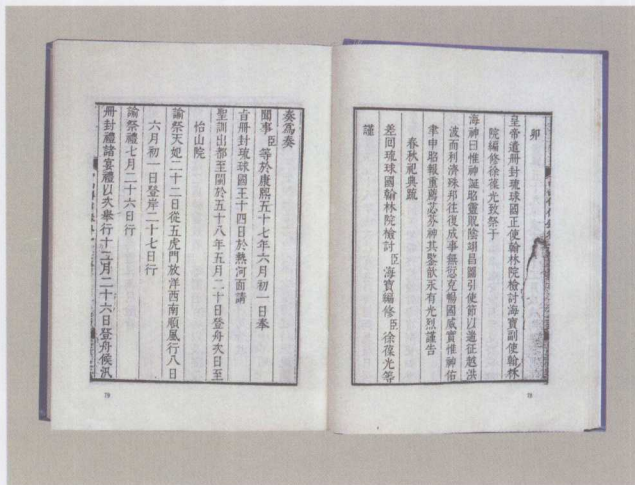 卯
皇帝遣冊封琉球國正使翰林院檢討海寶副使翰林
院編修徐葆光致祭于
海神曰惟神誕昭靈貺陰翊昌圖引使節以遄征越洪
波而利濟殊邦往復成事無愆克暢國威實惟神佑
聿申昭報重薦苾芬神其鑒歆永有光烈謹告
春秋祀典疏
差回琉球國翰林院檢討臣海寶編修臣徐葆光等
謹
奏爲奏
聞事臣等於康熙五十七年六月初一日奉
旨冊封琉球國王十四日於熱河面請
聖訓出都至閩於五十八年五月二十日登舟次日至
怡山院
諭祭天妃二十二日從五虎門放洋西南順風行八日
六月初一日登岸二十七日行
諭祭禮七月二十六日行
冊封禮諸宴禮以次舉行十二月二十六日登舟候汛
78
79